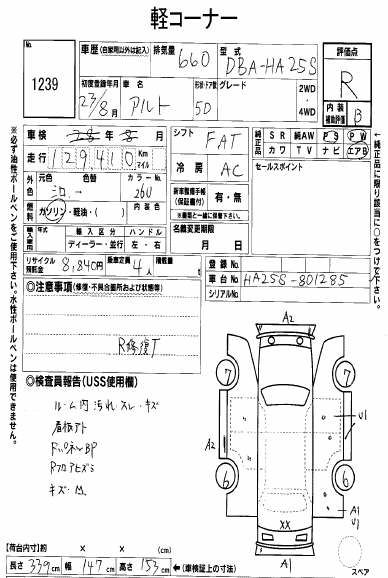 軽コーナー
No.
1239
車歴 (自家用以外は記入)
排気量 660
型式 DBA-HA25S
評価点
R
初度登録年月 23/8月
車名 アルト
形状・ドア数 5D
グレード
2WD
4WD
内装補助評価 B
車検 年 月
走行 129410 Km マイル
外色 元色 色替 カラーNo.
シロ → 26U
燃料 ガソリン・軽油・( ) 内装色
輸入車 年式 輸入区分 ハンドル
ディーラー・並行 左・右
シフト FAT
冷房 AC
新車整備手帳 (保証書付) 有・無
※書類と一緒に保管下さい
名義変更期限
月 日
純正品 SR 純AW PS PW
カワ TV ナビ エアB
セールスポイント
←純正品に限り該当に○をつけて下さい。
※必ず油性ボールペンをご使用下さい。水性ボールペンは使用できません。
リサイクル預託金 8,840円 乗車定員 4人 積載量 t
登録No.
車台No. HA25S-801285
シリアルNo.
◎注意事項 (修復・不具合箇所および状態等)
R修復T
◎検査員報告 (USS使用欄)
ルーム内 汚れ・スレ・キズ
7
7
U1
A2
U1
6
6
A2
XX
A1
U1
A1
スペア
【荷台内寸】約 × × (cm)
長さ 339cm 幅 147cm 高さ 153cm ←(車検証上の寸法)